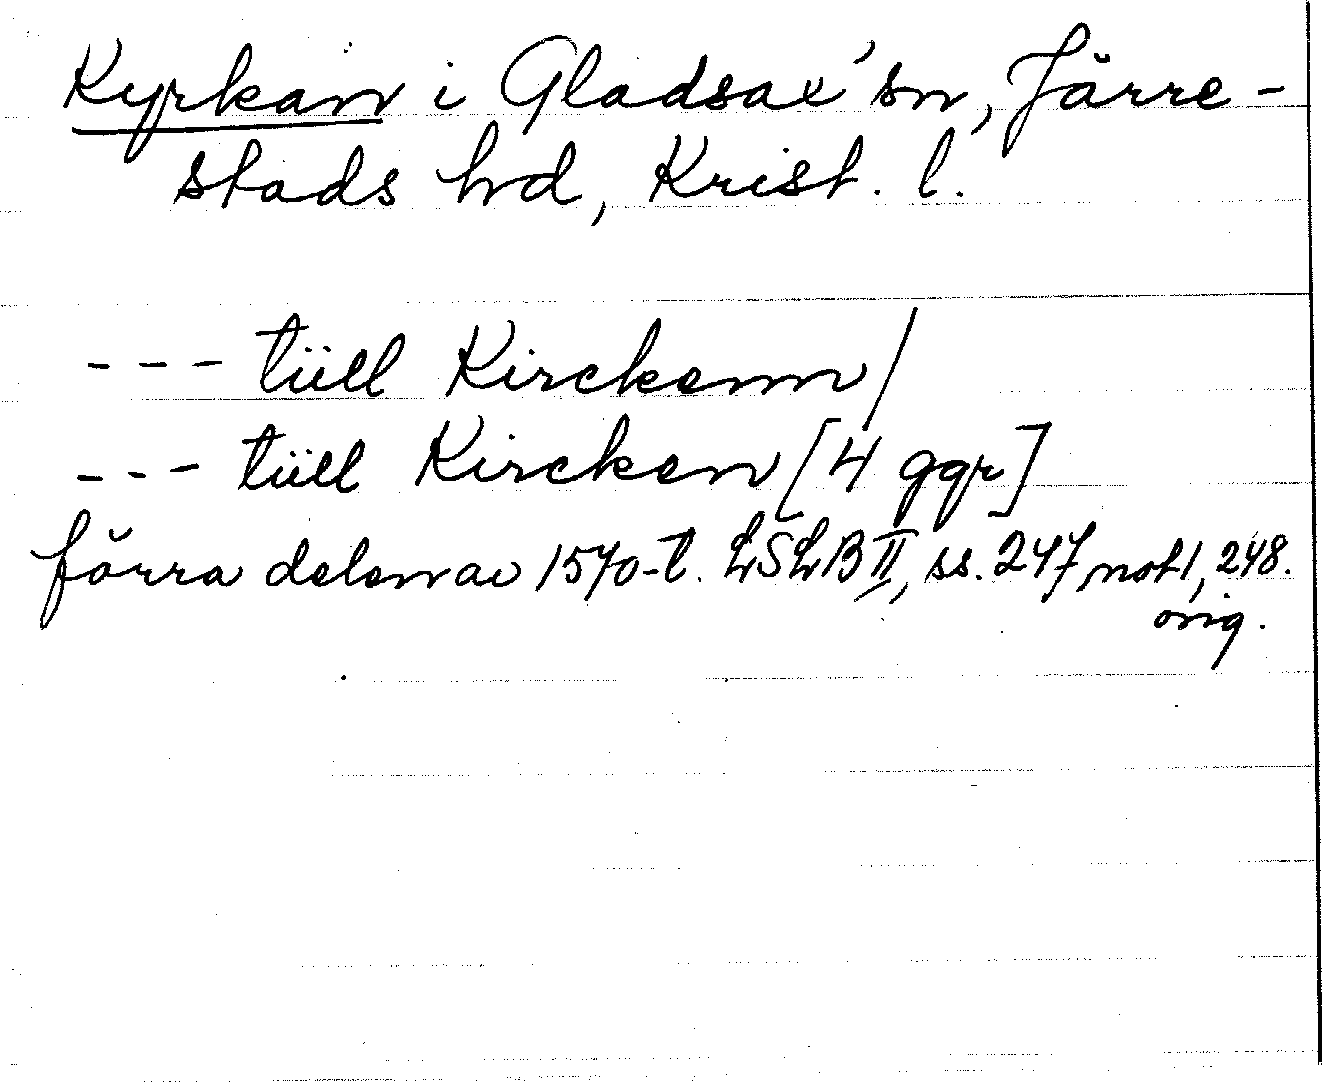 Kyrkan i Gladsax' sn, Järre-
stads hd, Krist. l.
--- tüll Kirckenn/
--- tüll Kircken [4 ggr]
förra delen av 1570-t. LSLB II, ss. 247 not 1, 248.
orig.